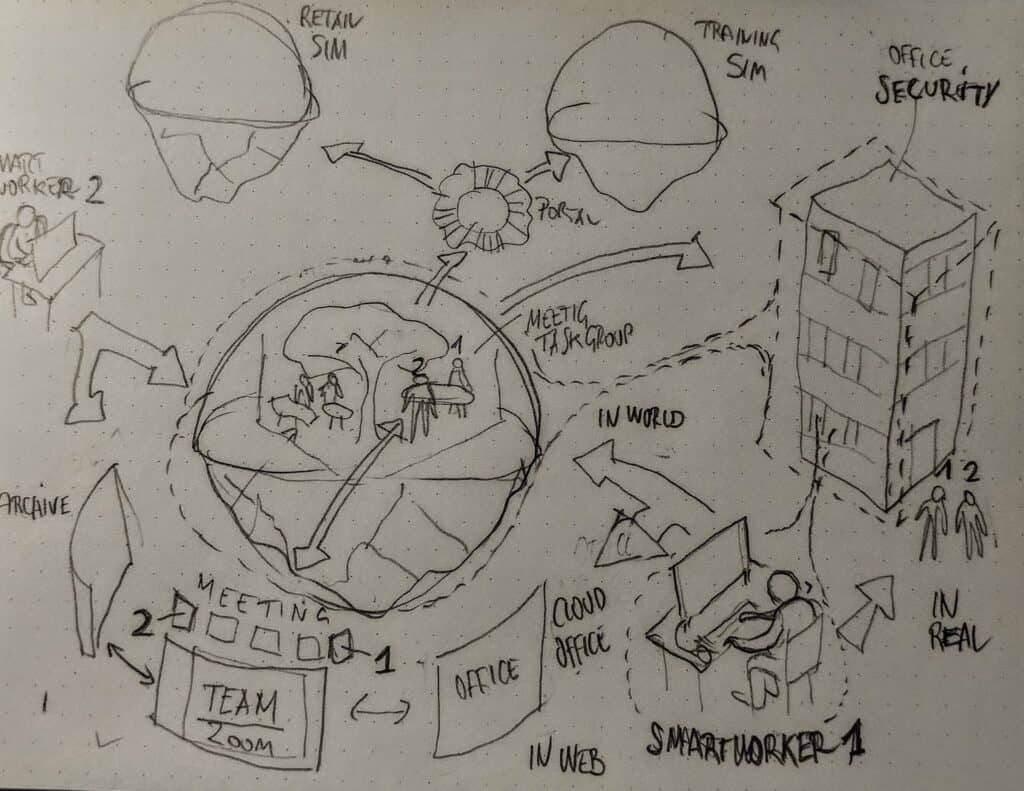 RETAIL
SIM
TRAINING
SIM
OFFICE
SECURITY
MART
WORKER 2
PORTAL
MEETIG
TASKGROUP
1
2
IN WORLD
ARCAIVE
1 2
MEETING
2
1
CLOUD
OFFICE
OFFICE
TEAM
ZOOM
IN
REAL
IN WEB
SMARTWORKER 1